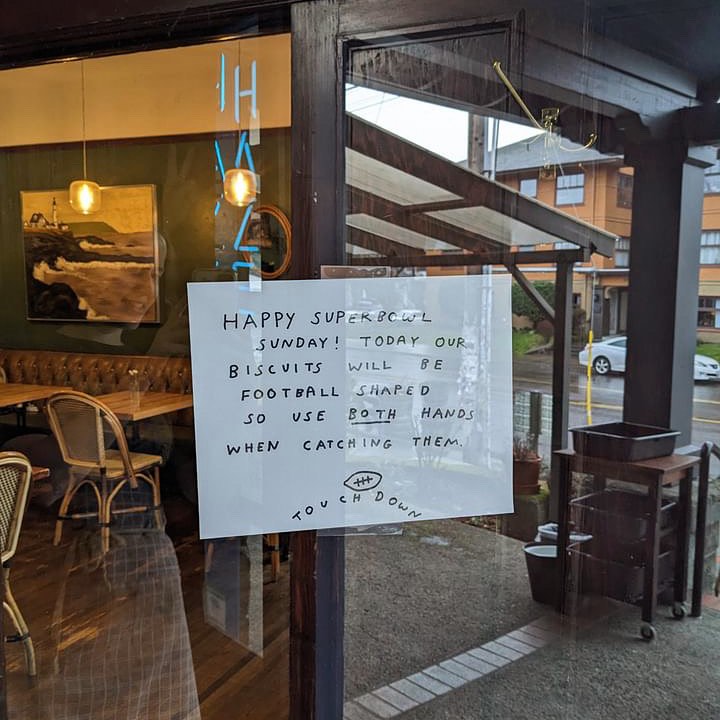 HAZEL
HAPPY SUPERBOWL
SUNDAY! TODAY OUR
BISCUITS WILL BE
FOOTBALL SHAPED
SO USE BOTH HANDS
WHEN CATCHING THEM.
TOUCH DOWN